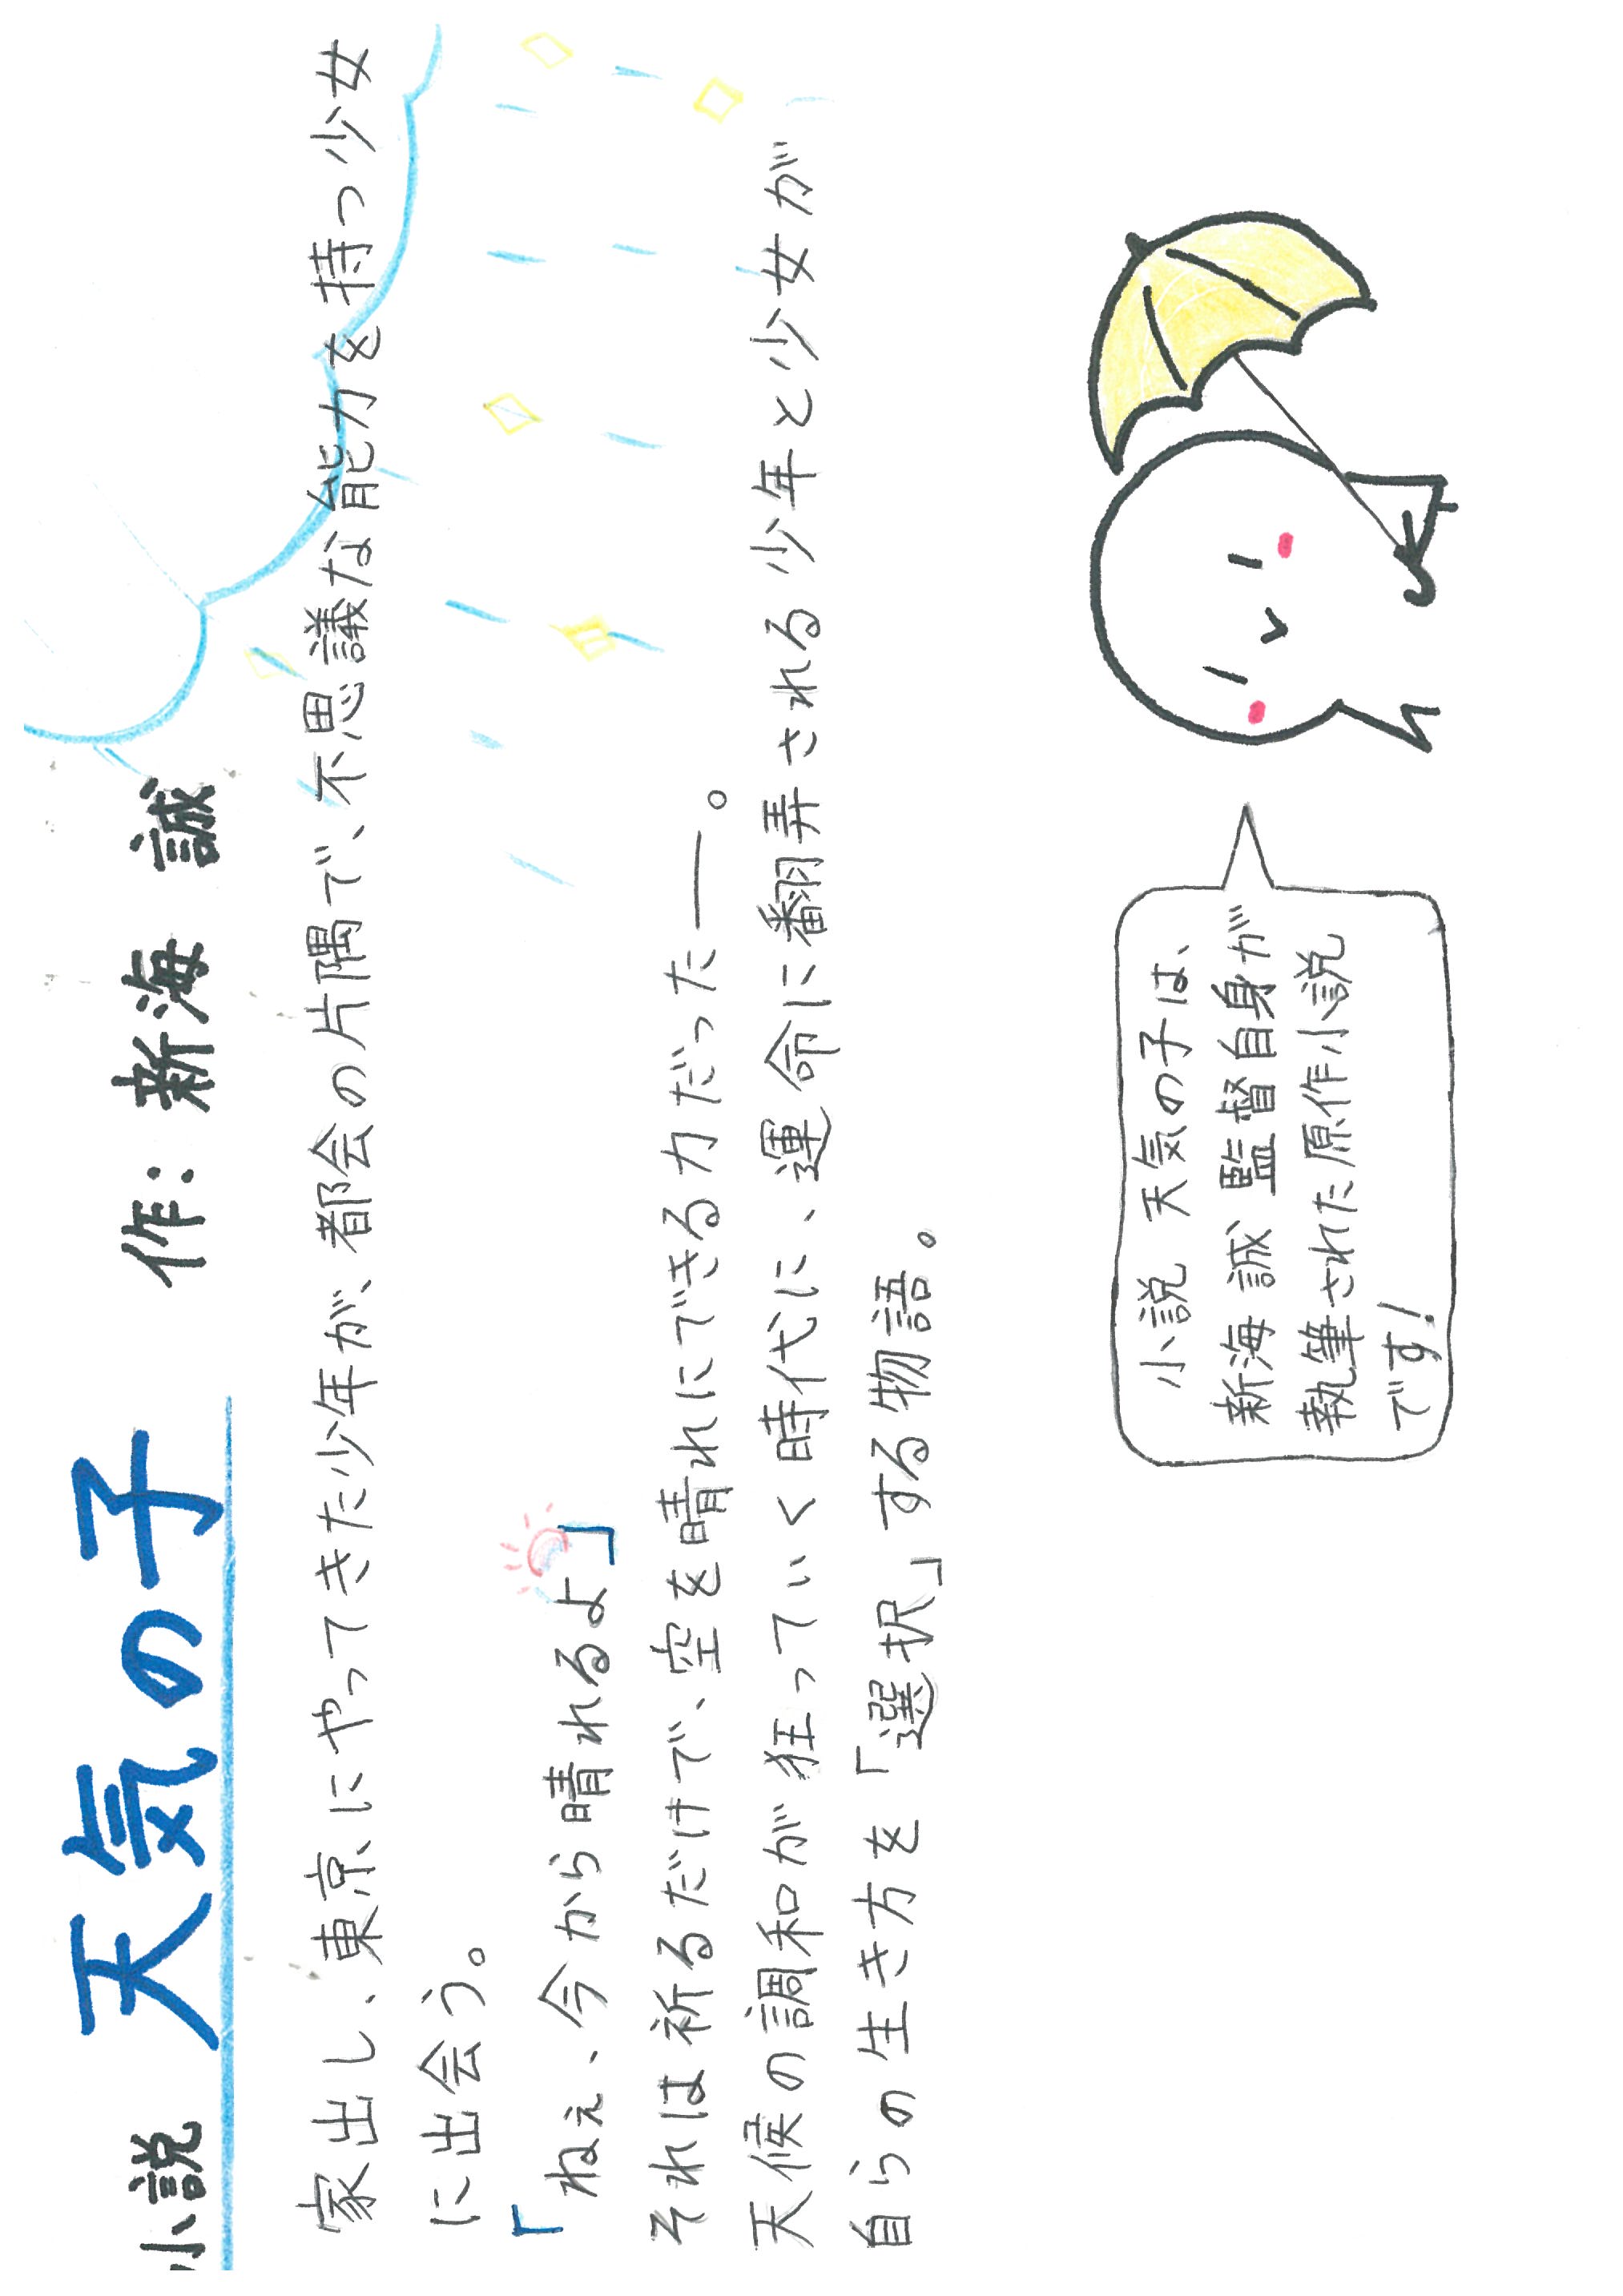 小説 天気の子 作：新海 誠
家出し、東京にやってきた少年が、都会の片隅で、不思議な能力を持つ少女
に出会う。
「ねぇ、今から晴れるよ」
それは祈るだけで、空を晴れにできる力だった――。
天候の調和が狂っていく時代に、運命に翻弄される少年と少女が
自らの生き方を「選択」する物語。
小説 天気の子は、
新海 誠 監督自身が
執筆された原作小説
です！